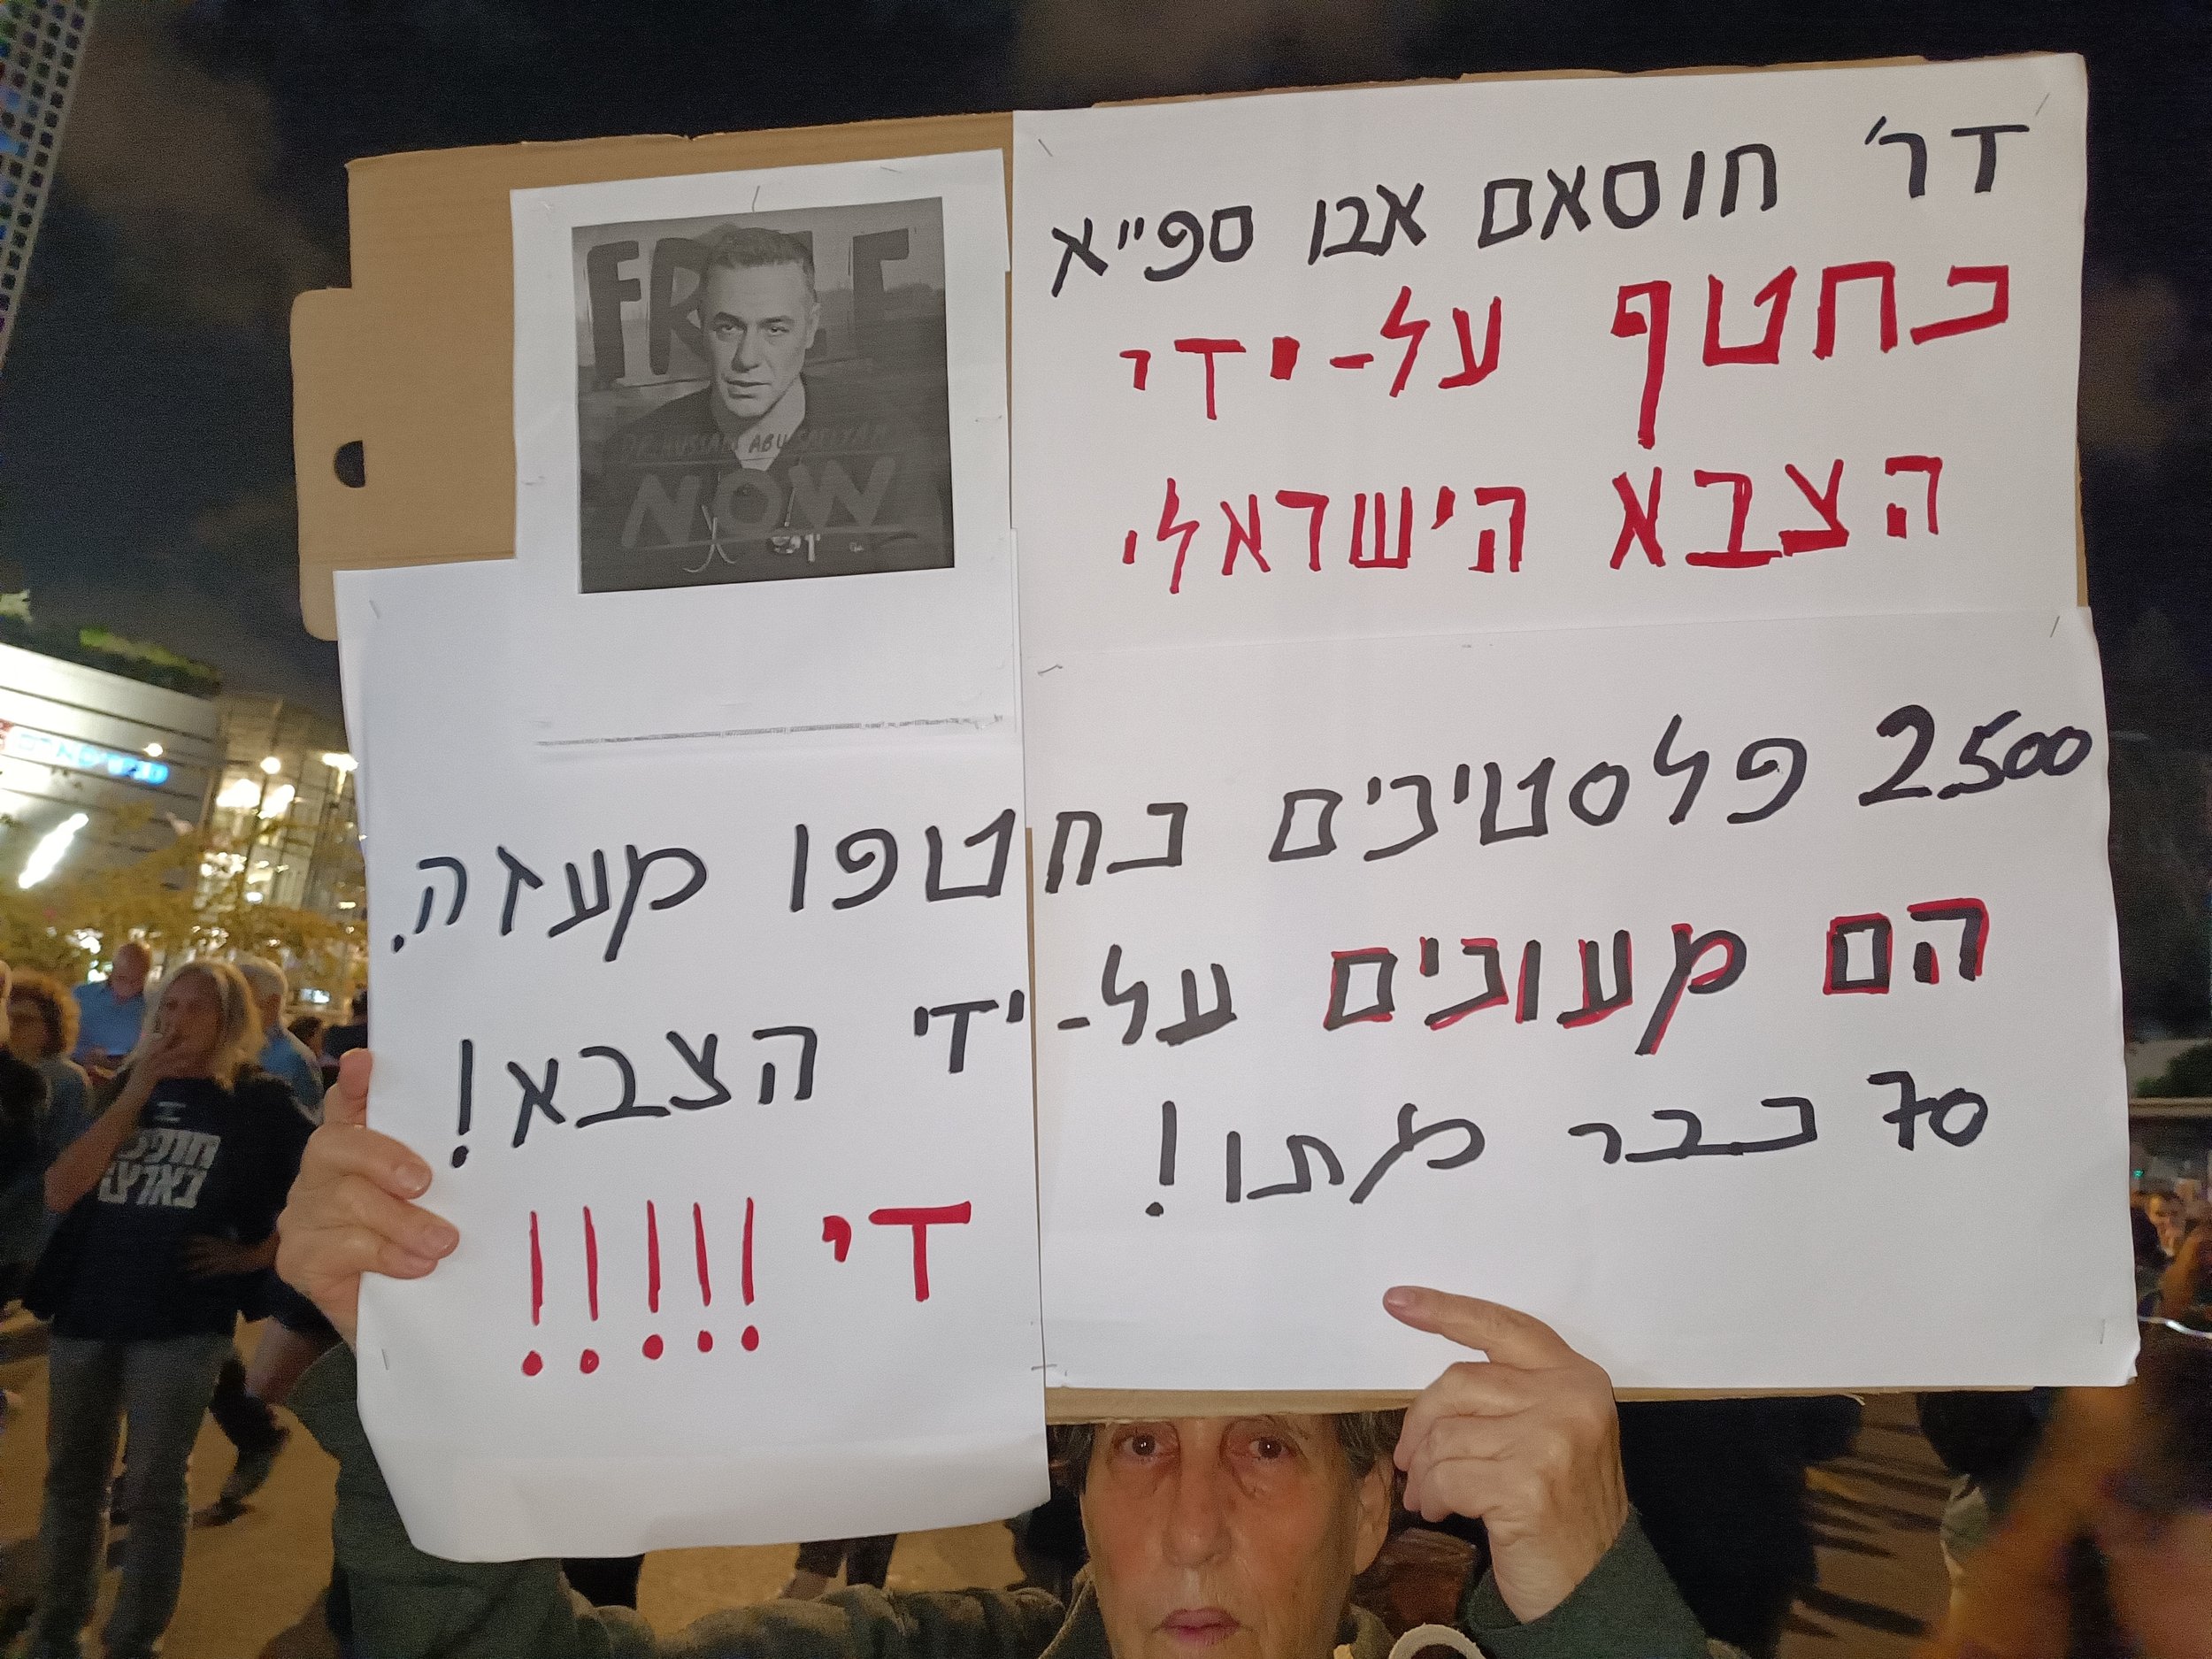 דר' חוסאם אבו ספייא
נחטף על-ידי
הצבא הישראלי
FREE
DR. HUSSAM ABU SAFIYAH
NOW
2500 פלסטינים נחטפו מעזה.
הם מעונים על-ידי הצבא!
70 כבר מתו!
די !!!!!
חופשי
בארצנו